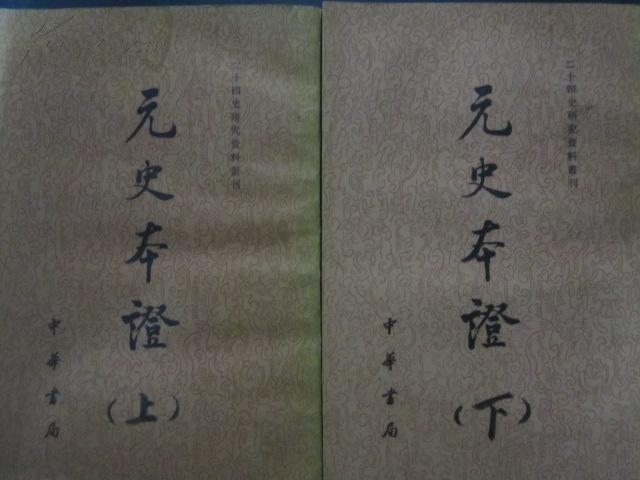 二十四史研究資料叢刊
元史本證
(上)
中華書局
二十四史研究資料叢刊
元史本證
(下)
中華書局